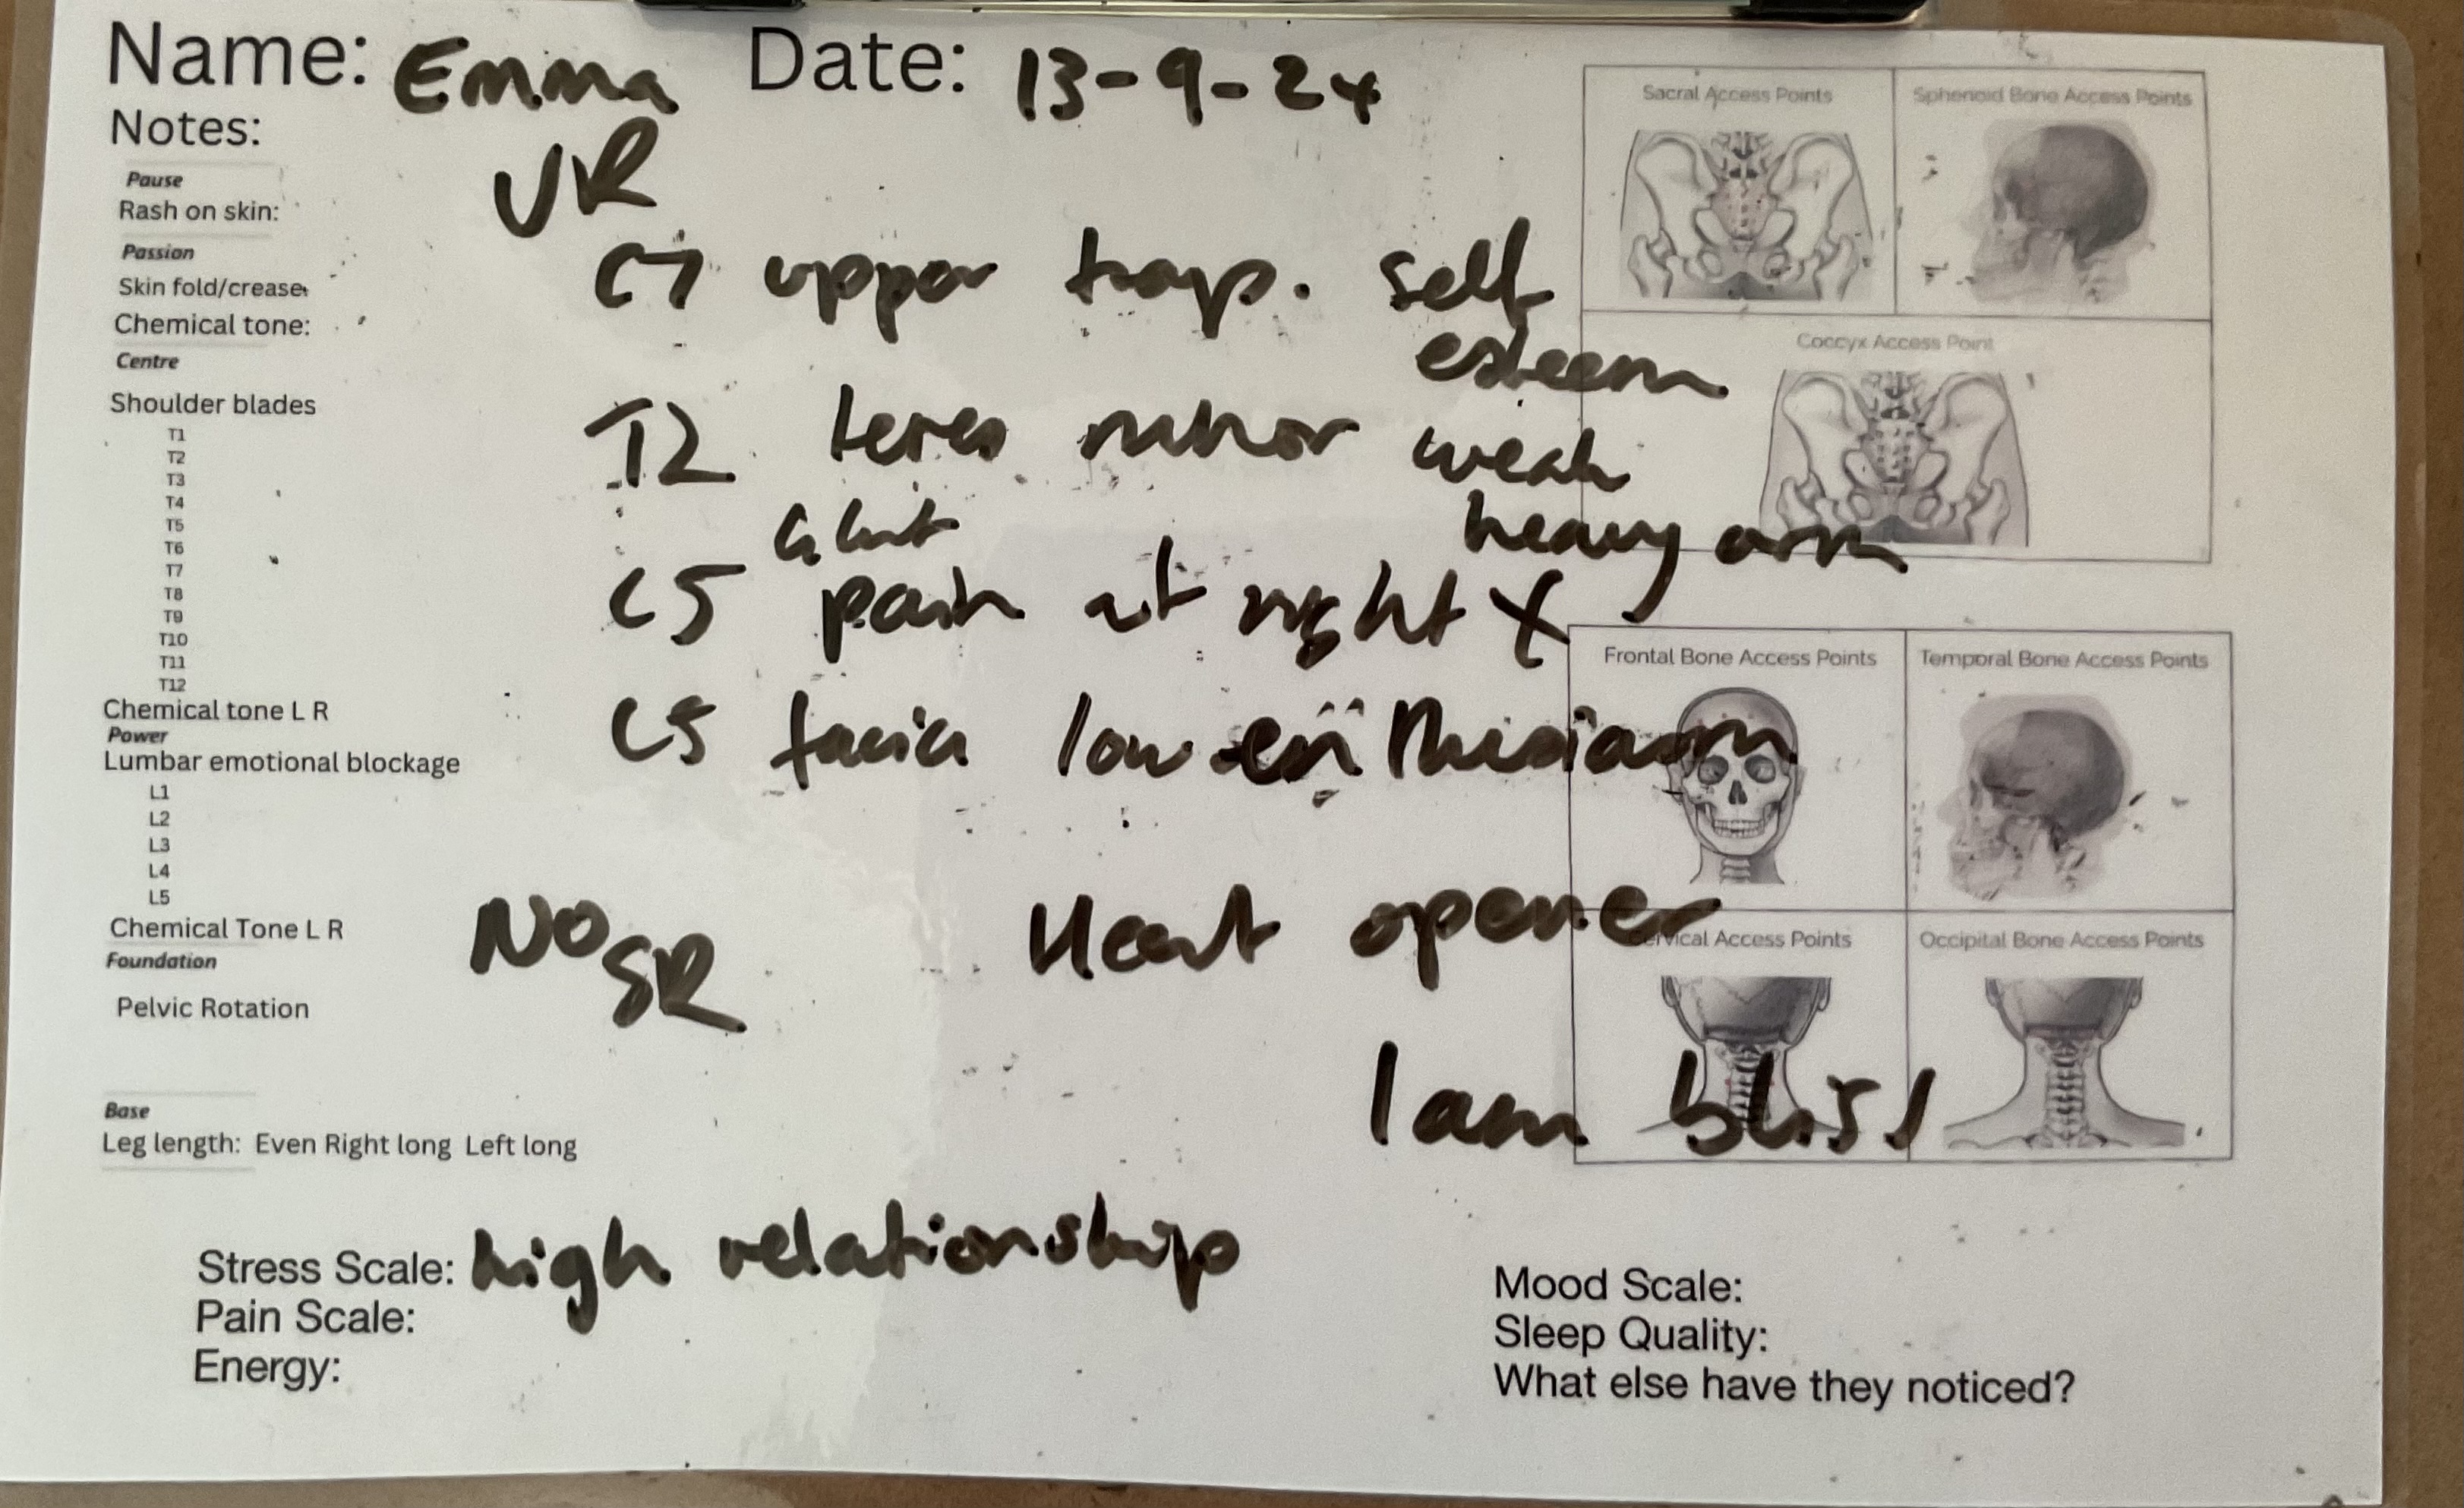 Name: Emma Date: 13-9-24
Notes:
UR
Pause
Rash on skin:
Passion
Skin fold/crease:
Chemical tone:
C7 upper trap. self
esteem
Centre
Shoulder blades
T1
T2
T3
T4
T5
T6
T7
T8
T9
T10
T11
T12
T2 teres minor weak
heavy arm
Glut
C5 pain at right
Chemical tone L R
L5 facia low enthusiasm
Power
Lumbar emotional blockage
L1
L2
L3
L4
L5
Chemical Tone L R
NO SR
Heart opener
Foundation
Pelvic Rotation
I am bliss
Base
Leg length: Even Right long Left long
Stress Scale: high relationship
Pain Scale:
Energy:
Sacral Access Points
Sphenoid Bone Access Points
Coccyx Access Point
Frontal Bone Access Points
Temporal Bone Access Points
Cervical Access Points
Occipital Bone Access Points
Mood Scale:
Sleep Quality:
What else have they noticed?